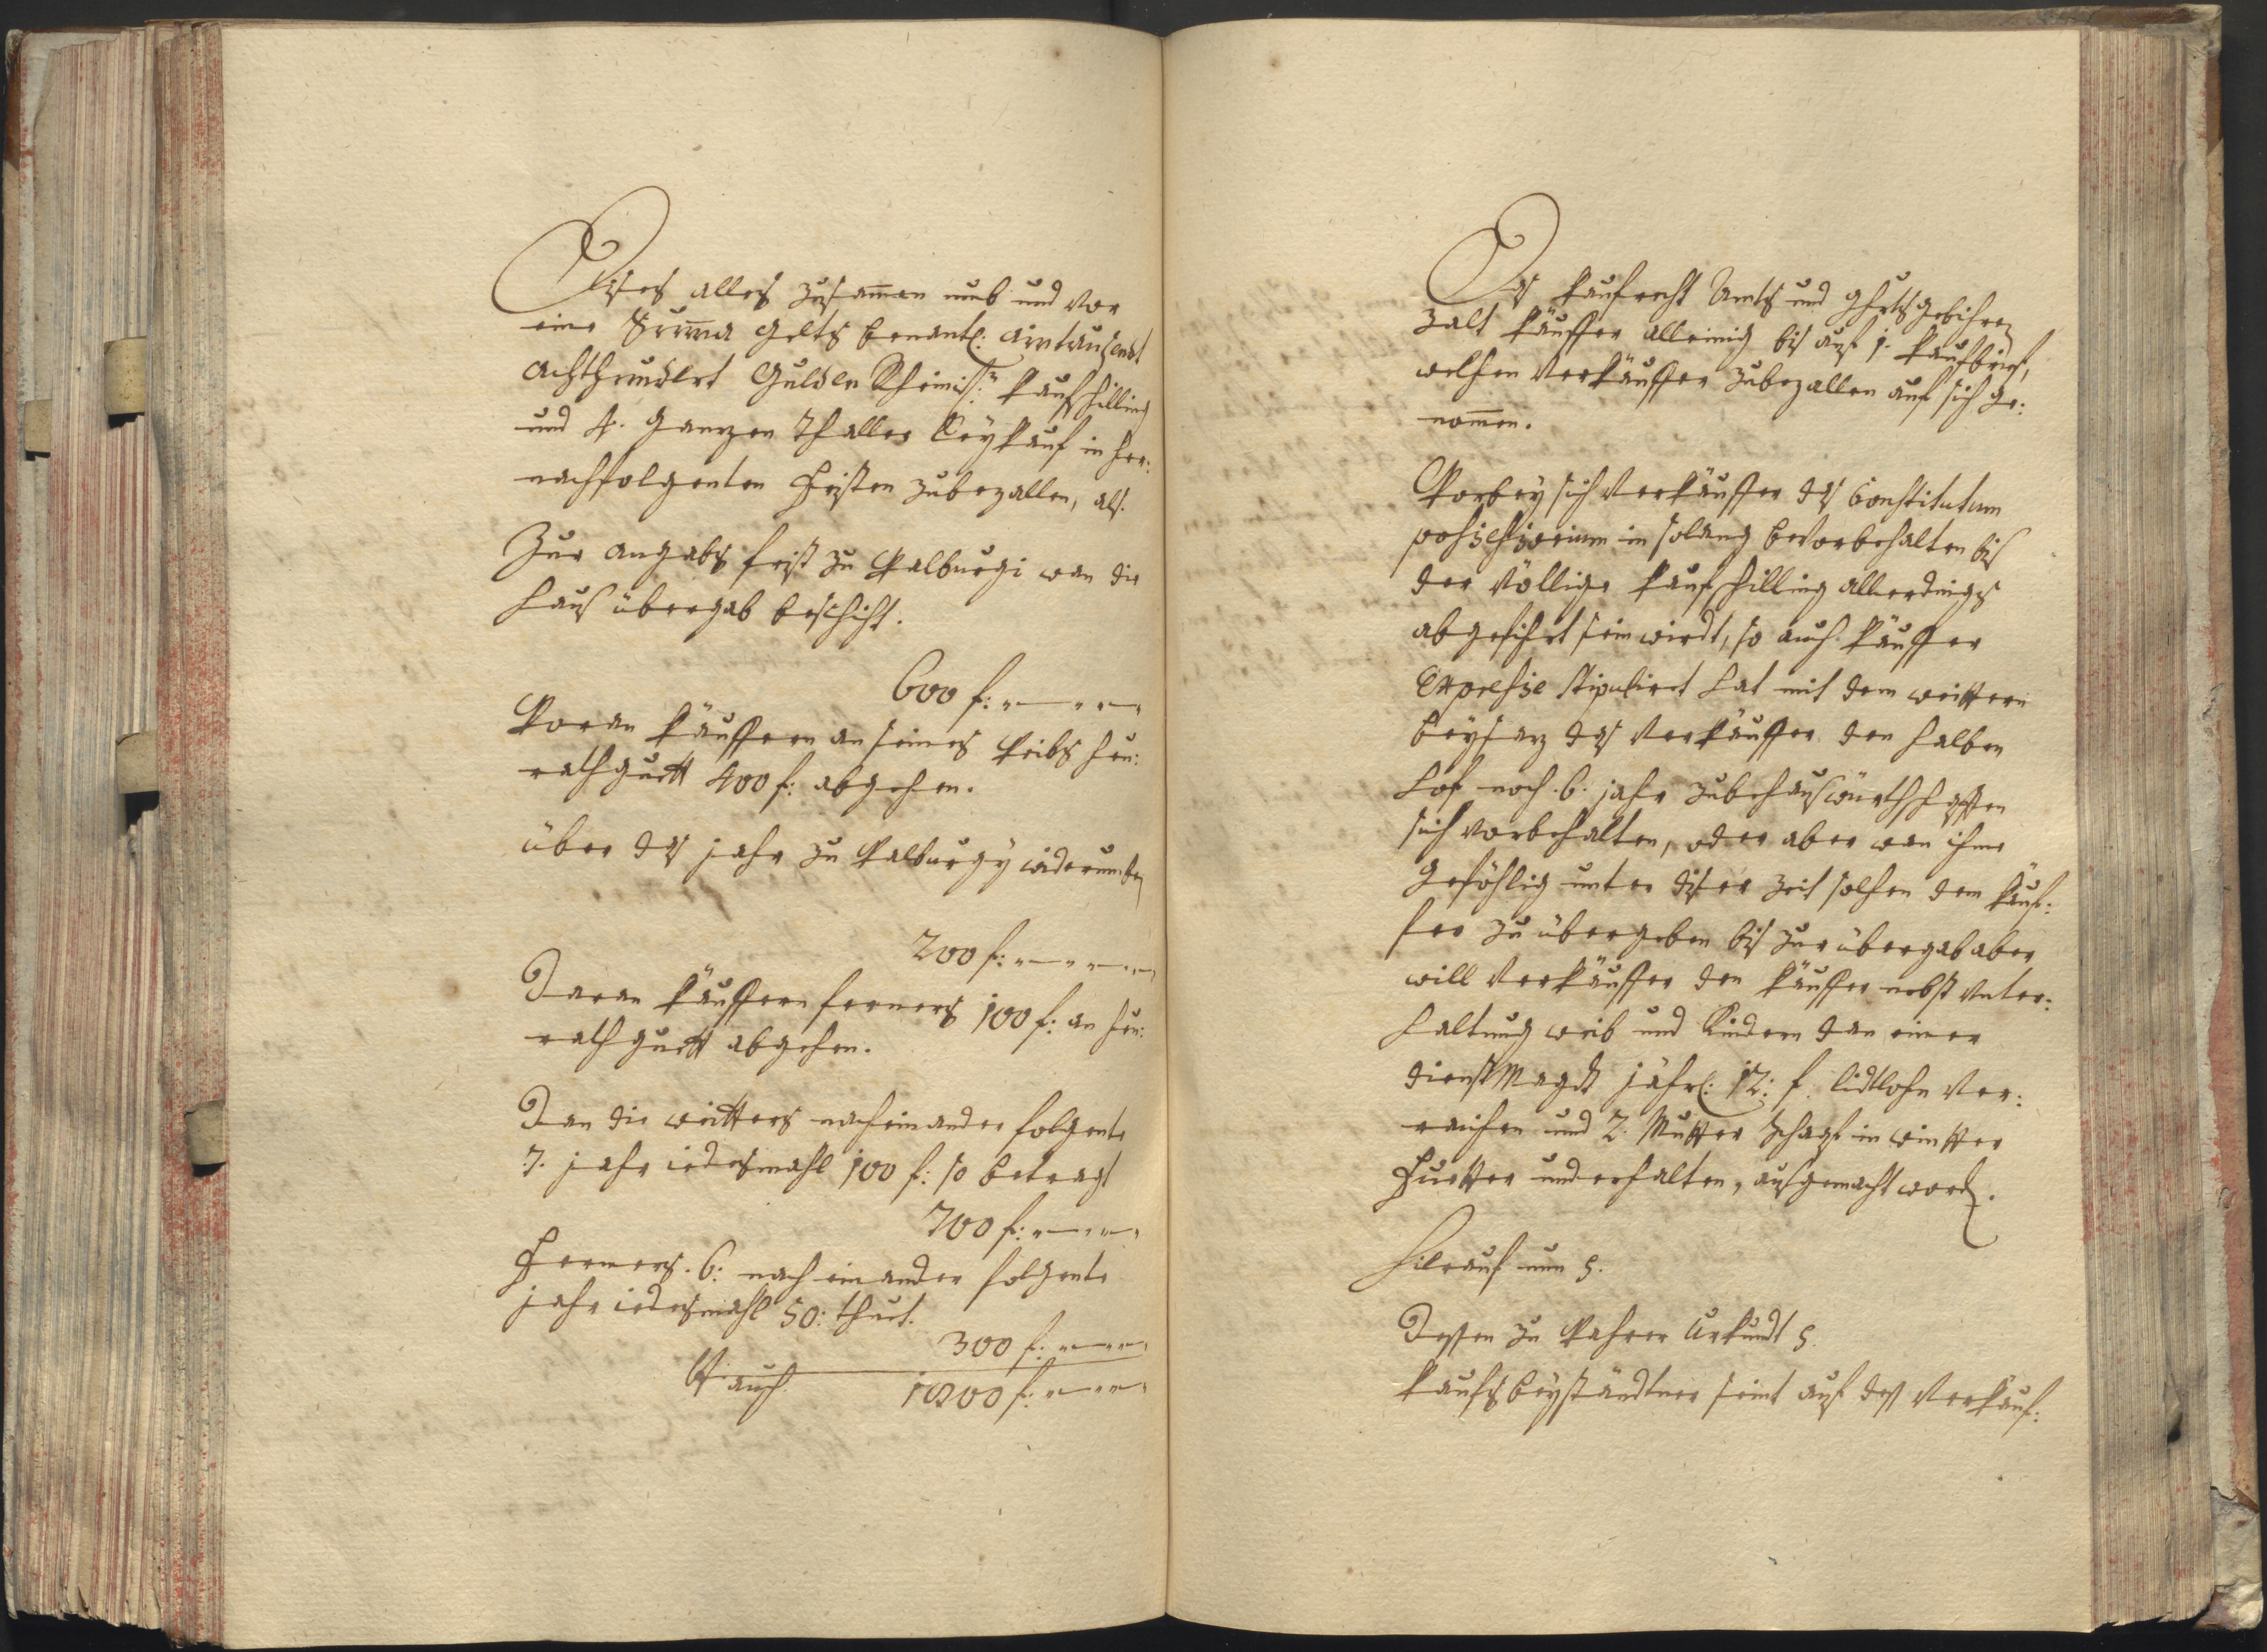 Dises alles zusammen umb und vor
eine Summa Gelts benantl: aintausendt
achthundert Gulden Rheinisch: Kaufschilling
und 4. ganzen Thaller Leykauf in her:
nachfolgenten Fristen zubezallen, als
Zur angabs frist zu Walburgi wan die
Haus übergab beschicht.
600 f:
Woran Käuffern an seines Weibs heu:
rathguett 400 f: abgehen.
über das jahr zu Walburgy widerumben
200 f:
Daran Käuffern ferners 100 f: an heu:
rathguett abgehen.
Dan die weitters nacheinander folgente
7. jahr iedesmahl 100 f: so betragt
700 f:
Ferners. 6: nach einander folgente
jahr iedesmahl 50: thuet.
300 f:
auch 1800 f:
Das Kaufrecht Ambts und Ghrtsgebihren
zalt Käuffer alleinig bis auf 1. Kaufbrief,
welchen Verkäuffer zubezallen auf sich ge:
nommen.
Worbey sich Verkäuffer das Constitutum
possessorium in solang bevorbehalten bis
der völlige Kaufschilling allerdings
abgefihrt sein wirdt, so auch Käuffer
Expresse stipuliert hat mit dem weittern
beysaz das Verkäuffer den halben
Hof noch 6. jahr zubehauswürthschafften
sich vorbehalten, oder aber wan ihme
gefählig unter diser zeit solchen dem Käuf:
fer zu übergeben bis zur übergab aber
will Verkäuffer den Käuffer nebst unter:
haltung weib und Kindern dan einer
dienst Magdt jährl: 12: f. lidtlohn ver:
raichen und 2. Mutter Schaaf in wintter
Fuetter underhalten, ausgemacht worden.
Hierauf nun s.
Dessen zu Wahrer Urkundt s.
Kaufs beyständtner seint auf des Verkäuf: